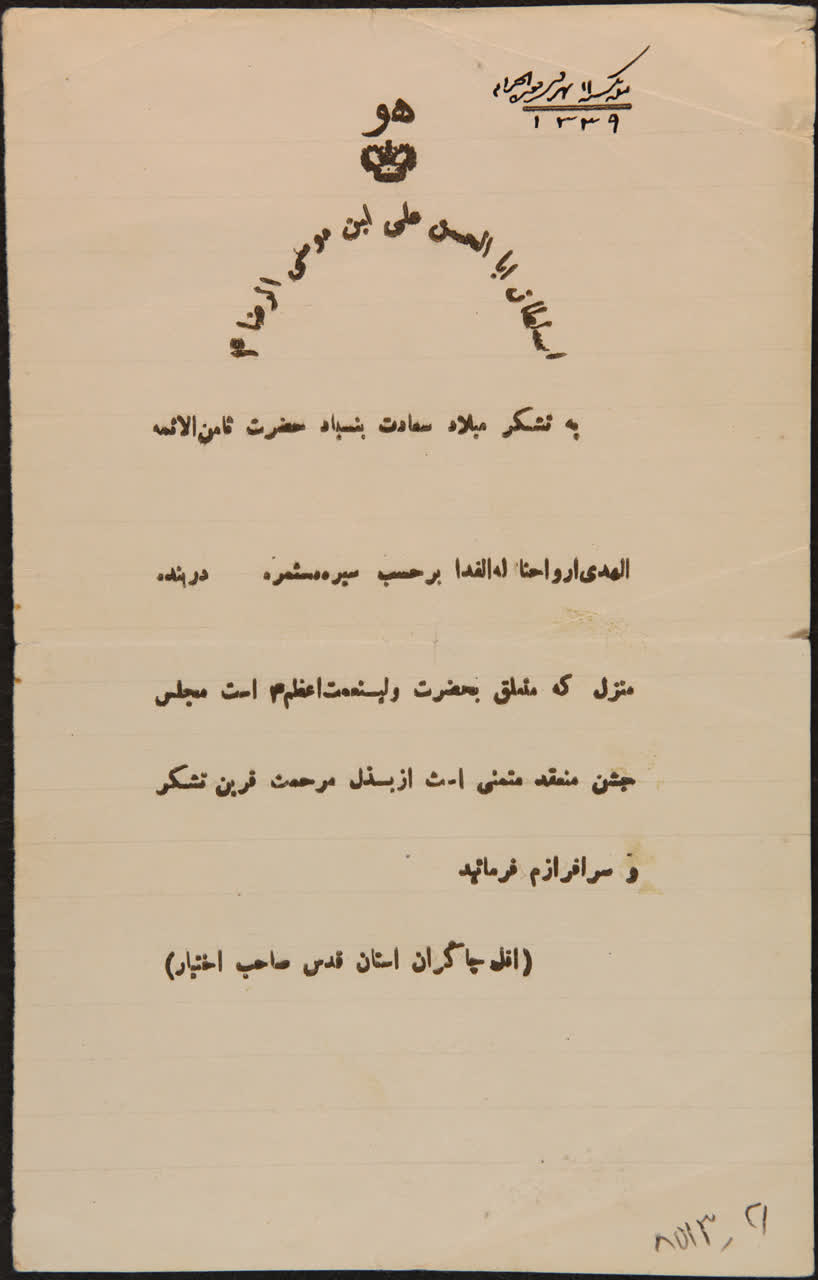 هو
۱۳۳۹
السلطان ابا الحسن علی ابن موسی الرضا ۴
به تشکر میلاد سعادت بنیاد حضرت ثامن الائمه
الهدی ارواحنا له الفدا بر حسب سیره مستمره در بنده
منزل که متعلق بحضرت ولینعمت اعظم ۴ است مجلس
جشن منعقد متمنی است از بذل مرحمت قرین تشکر
و سرافرازم فرمائید
(اقل چاکران استان قدس صاحب اختیار)